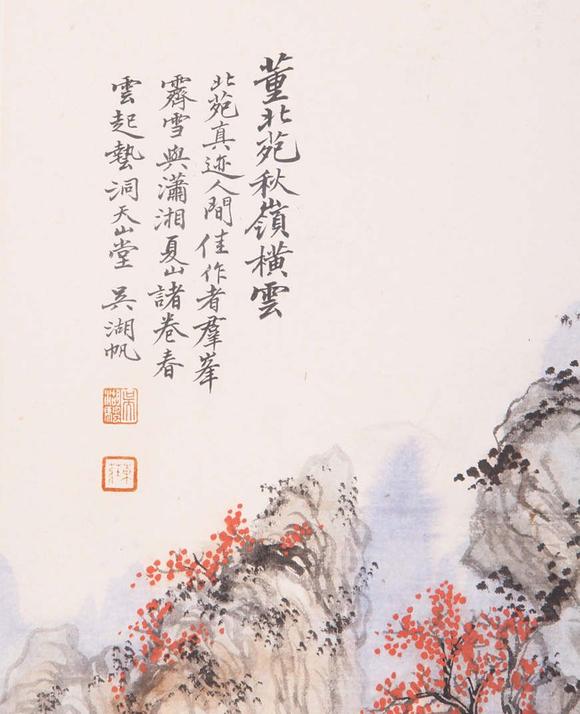 董北苑秋嶺橫雲
北苑真迹人間佳作者羣峯
霽雪與瀟湘夏山諸卷春
雲起洞天山堂 吳湖帆